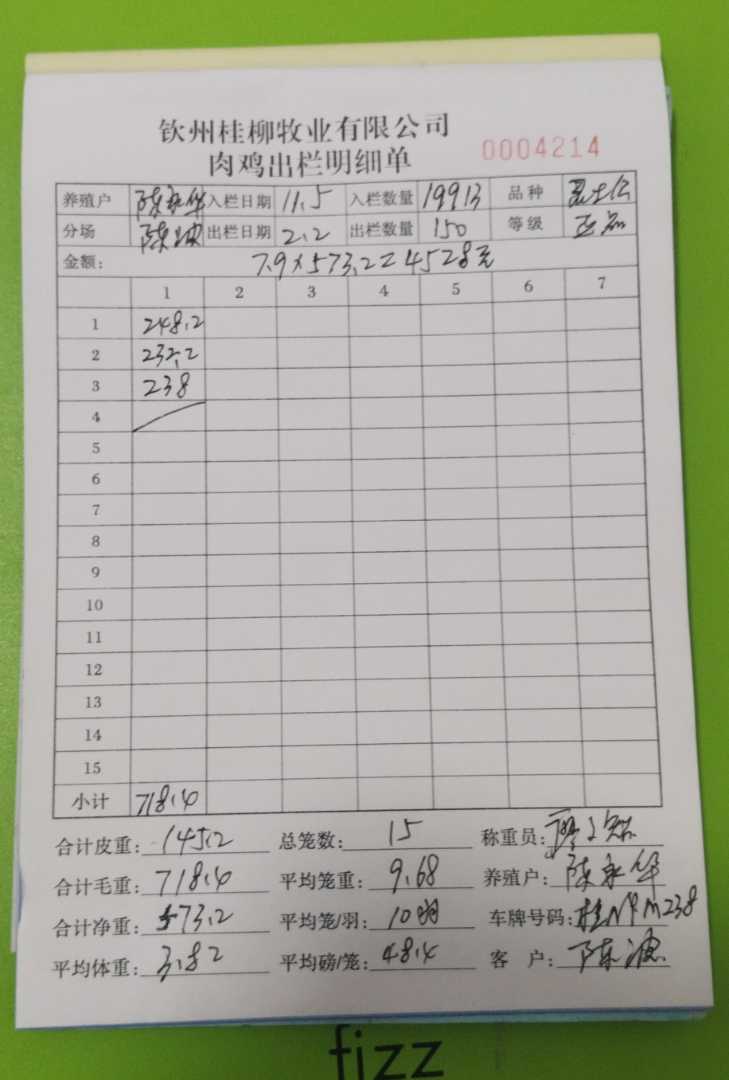 钦州桂柳牧业有限公司
肉鸡出栏明细单 0004214
养殖户 陈永华 入栏日期 11.5 入栏数量 19913 品种
分场 出栏日期 2.2 出栏数量 150 等级 正品
金额: 7.9×573.2=4528元
1 2 3 4 5 6 7
1 248.2
2 232.2
3 238
4
5
6
7
8
9
10
11
12
13
14
15
小计 718.4
合计皮重: 145.2 总笼数: 15 称重员:
合计毛重: 718.4 平均笼重: 9.68 养殖户: 陈永华
合计净重: 573.2 平均笼/羽: 10羽 车牌号码: 桂
平均体重: 3.82 平均磅/笼: 48.4 客户: 陈波
fizz